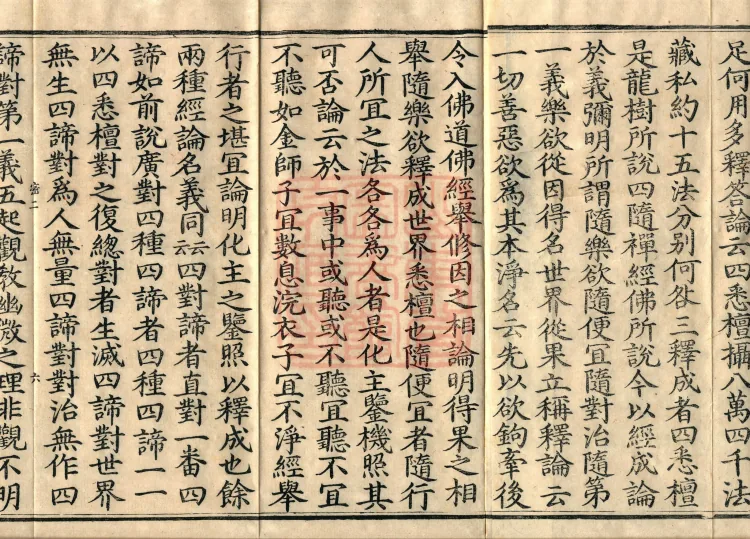 足何用多釋答論云四悉檀攝八萬四千法
藏私約十五法分別何咎三釋成者四悉檀
是龍樹所說四隨禪經佛所說今以經成論
於義彌明所謂隨樂欲隨便宜隨對治隨第
一義樂欲從因得名世界從果立稱釋論云
一切善惡欲爲其本淨名云先以欲鉤牽後
令入佛道佛經舉修因之相論明得果之相
舉隨樂欲釋成世界悉檀也隨便宜者隨行
人所宜之法各各爲人者是化主鑒機照其
可否論云於一事中或聽或不聽宜聽不宜
不聽如金師子宜數息浣衣子宜不淨經舉
行者之堪宜論明化主之鑒照以釋成也餘
兩種經論名義同云云四對諦者直對一番四
諦如前說廣對四種四諦者四種四諦一一
以四悉檀對之復總對者生滅四諦對世界
無生四諦對爲人無量四諦對對治無作四
諦對第一義五起觀教幽微之理非觀不明
六